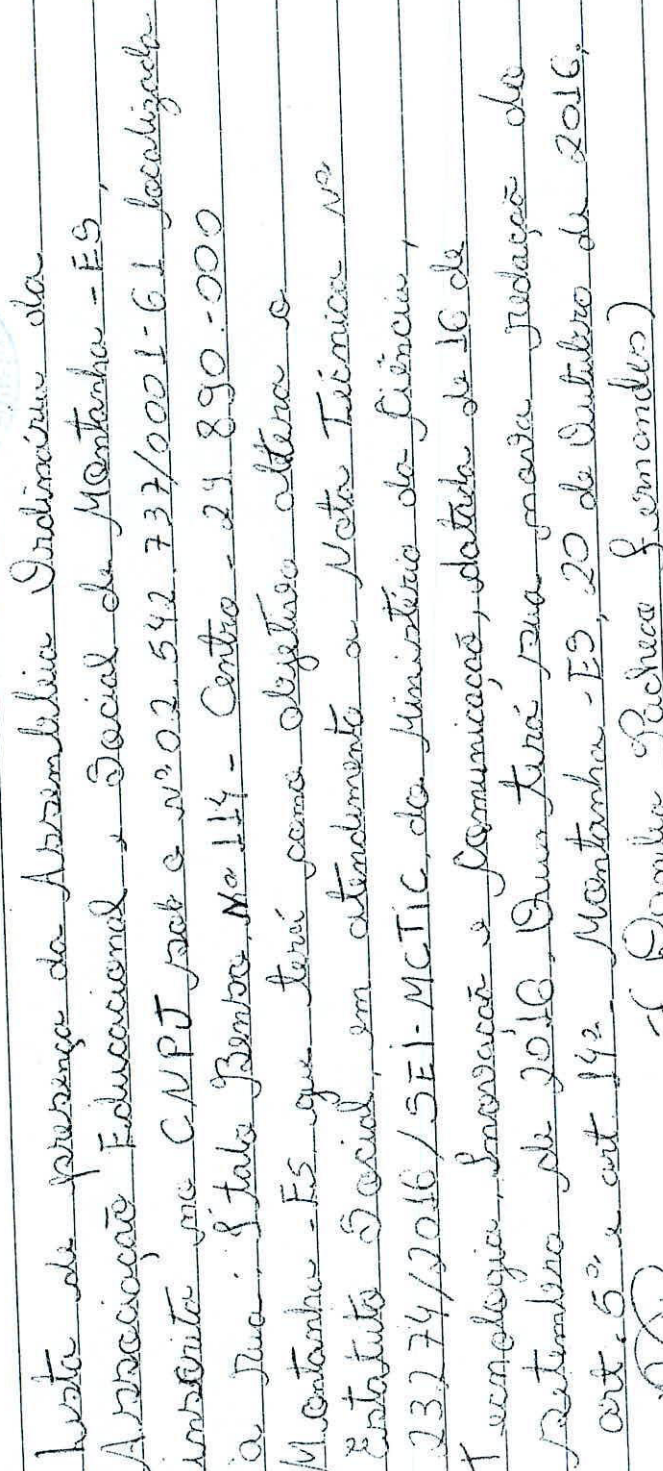 Lista de presença da Assembleia Ordinária da
Associação Educacional e Social de Montanha - ES,
inscrita no CNPJ sob o Nº 02.542.737/0001-61 localizada
à Rua: Ítalo Benso, Nº 114 - Centro - 29 890-000
Montanha - ES que terá como objetivo altera o
Estatuto Social, em atendimento a Nota Técnica Nº
23274/2016/SEI-MCTIC, do Ministério da Ciência,
Tecnologia, Inovação e Comunicação, datada de 16 de
setembro de 2016. Que terá sua nova redação do
art. 5º e art 14º. Montanha - ES, 20 de Outubro de 2016.
Pacheco Fernandes)